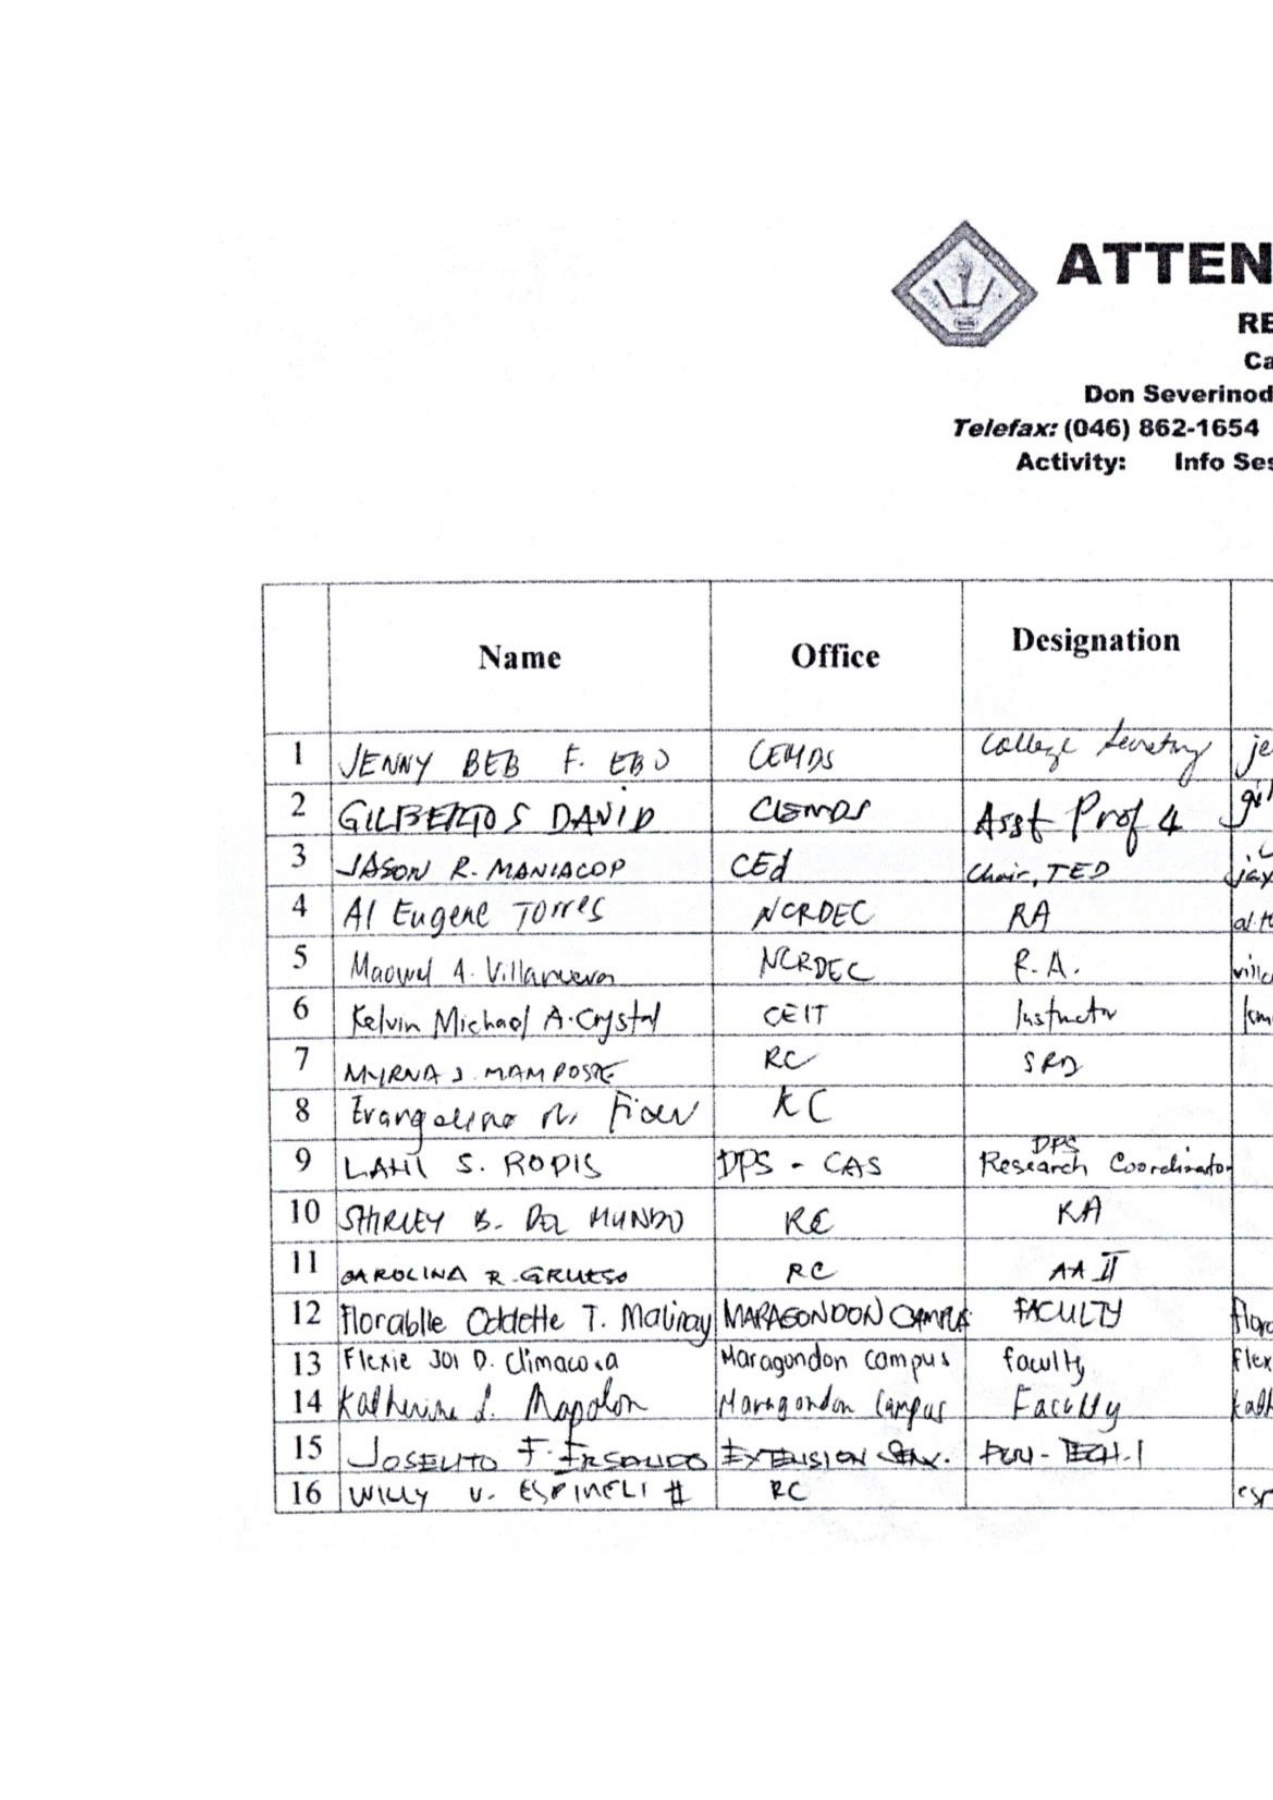 ATTEN
RE
Ca
Don Severinod
Telefax: (046) 862-1654
Activity: Info Ses
Name Office Designation
1 JENNY BEB F. EBO CEMDS College Secretary je
2 GILBERTO S DAVID CEMDS Asst Prof 4 gil
3 JASON R. MANIACOP CEd Chair, TED jay
4 Al Eugene Torres NCRDEC RA al.t
5 Manuel A. Villanueva NCRDEC R.A. villa
6 Kelvin Michael A. Crystal CEIT Instructor km
7 MYRNA J. MAMPOSTE RC SRA
8 RC
9 LANI S. RODIS DPS - CAS DPS Research Coordinator
10 SHIRLEY B. DEL MUNDO RC RA
11 CAROLINA R. GRUESO RC AA II
12 Florablle Oddette T. Maliray MARAGONDON CAMPUS FACULTY flora
13 Flexie JOI D. Climacosa Maragondon campus faculty flex
14 Katherine L. Mapolon Maragondon Campus Faculty kath
15 JOSELITO F. EXTENSION SERV.
16 WILLY V. ESPINELI RC esp